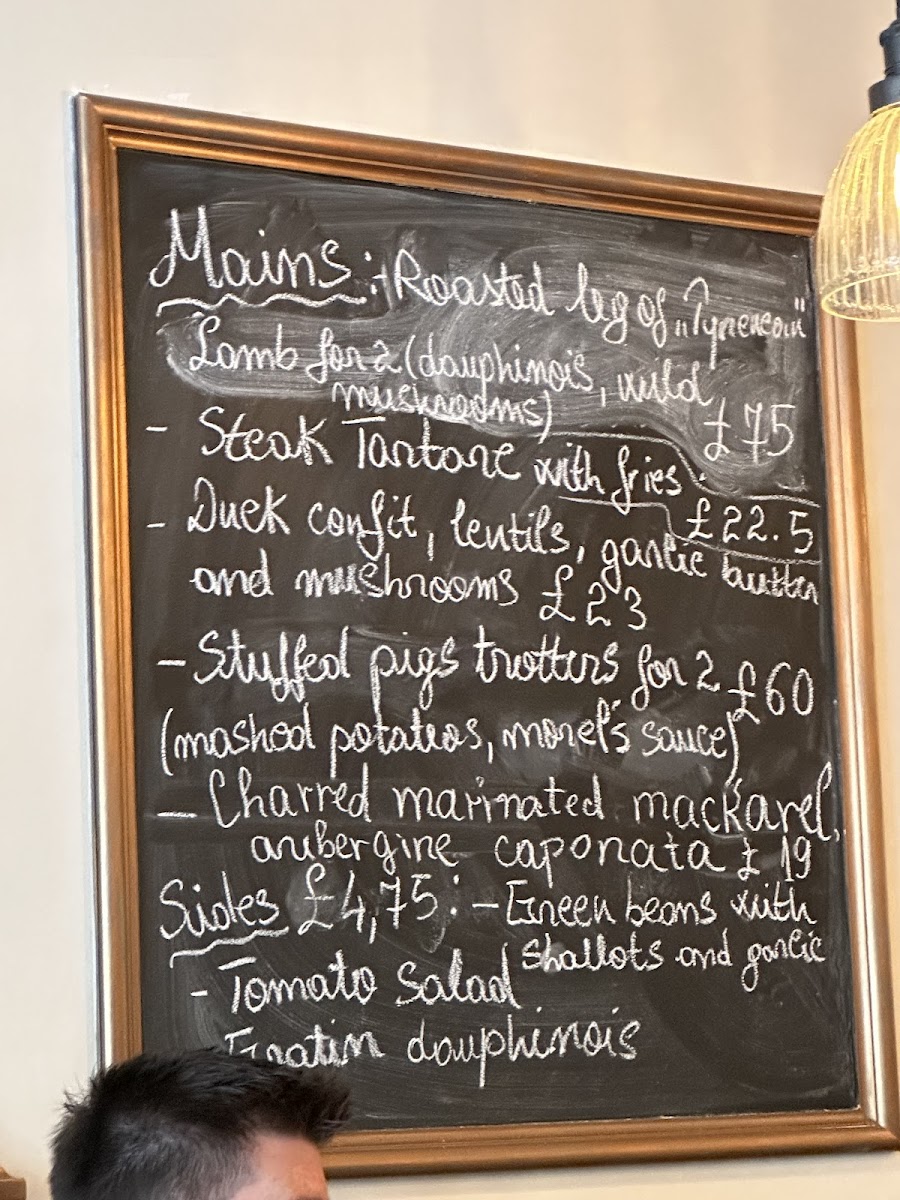 Mains:- Roasted leg of „Pyrenean"
Lamb for 2 (dauphinois, wild
mushrooms) £75
- Steak Tartare with fries. £22.5
- Duck confit, lentils, garlic butter
and mushrooms £23
- Stuffed pigs trotters for 2 £60
(mashed potatoes, morel's sauce)
- Charred marinated mackarel,
aubergine caponata £19
Sides £4,75: - Green beans with
shallots and garlic
- Tomato salad
Gratin dauphinois